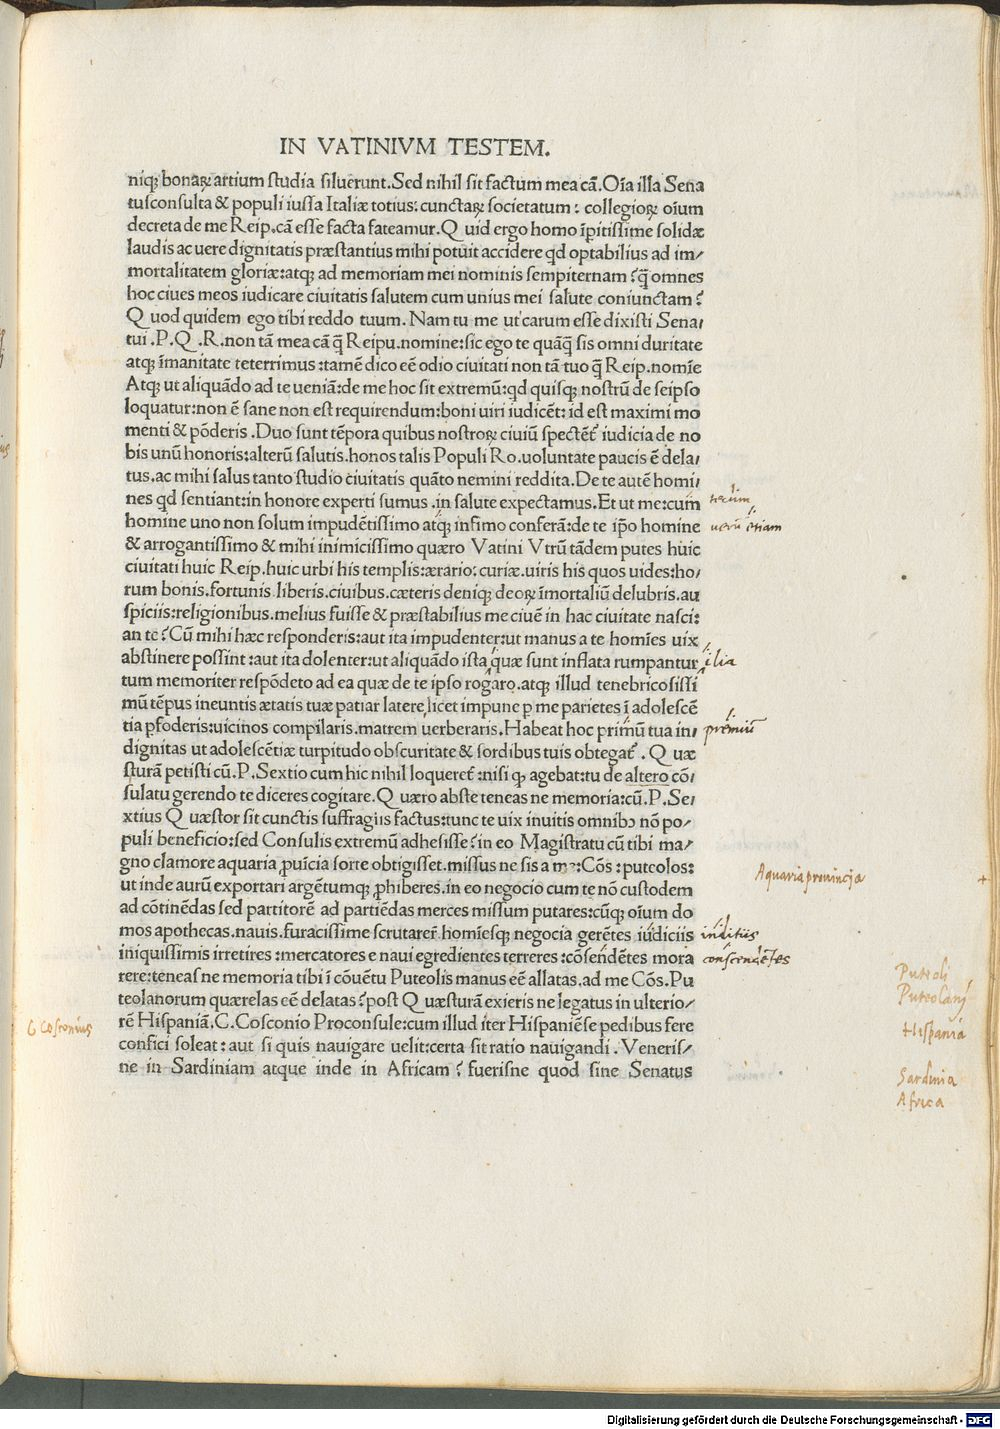 IN VATINIVM TESTEM.
niqꝫ bonaꝝ artium ſtudia ſiluerunt.Sed nihil ſit factum mea cā.Oīa illa Sena
tuſconſulta & populi iuſſa Italiæ totius: cunctaꝝ ſocietatum : collegioꝝ oīum
decreta de me Reip.cā eſſe facta fateamur.Q uid ergo homo īpitiſſime ſolidæ
laudis ac uere dignitatis præſtantius mihi potuit accidere qd optabilius ad im/
mortalitatem gloriæ:atqꝫ ad memoriam mei nominis ſempiternam ?q̄ omnes
hoc ciues meos iudicare ciuitatis ſalutem cum unius mei ſalute coniunctam ?
Q uod quidem ego tibi reddo tuum. Nam tu me ut carum eſſe dixiſti Sena/
tui .P.Q .R.non tā mea cā q̄ Reipu.nomine:ſic ego te quāq̄ ſis omni duritate
atqꝫ īmanitate teterrimus :tamē dico eē odio ciuitati non tā tuo q̄ Reip.nomīe
Atqꝫ ut aliquādo ad te ueniā:de me hoc ſit extremū:qd quiſqꝫ noſtrū de ſeipſo
loquatur:non ē ſane non eſt requirendum:boni uiri iudicēt: id eſt maximi mo
menti & pōderis .Duo ſunt tēpora quibus noſtroꝝ ciuiū ſpectēt᷑ iudicia de no
bis unū honoris:alterū ſalutis.honos talis Populi Ro.uoluntate paucis ē dela/
tus.ac mihi ſalus tanto ſtudio ciuitatis quāto nemini reddita.De te autē homi/
nes qd ſentiant:in honore experti ſumus .in ſalute expectamus.Et ut me:cum
tecum
homine uno non ſolum impudētiſſimo atqꝫ infimo conferā:de te ip̄o homine
uerū etiam
& arrogantiſſimo & mihi inimiciſſimo quæro Vatini Vtrū tādem putes huic
ciuitati huic Reip.huic urbi his templis:ærario: curiæ.uiris his quos uides:ho/
rum bonis.fortunis liberis.ciuibus.cæteris deniqꝫ deoꝝ īmortaliū delubris.au
ſpiciis:religionibus.melius fuiſſe & præſtabilius me ciuē in hac ciuitate naſci:
an te ?Cū mihi hæc reſponderis:aut ita impudenter:ut manus a te homīes uix
abſtinere poſſint :aut ita dolenter:ut aliquādo iſta quæ ſunt inflata rumpantur
ilia
tum memoriter reſpōdeto ad ea quæ de te ipſo rogaro.atqꝫ illud tenebricoſiſſi
mū tēpus ineuntis ætatis tuæ patiar latere.licet impune p me parietes ī adoleſcē
tia pfoderis:uicinos compilaris.matrem uerberaris.Habeat hoc primū tua in/
prēmiū
dignitas ut adoleſcētiæ turpitudo obſcuritate & ſordibus tuis obtegat᷑ . Q uæ
ſturā petiſti cū.P.Sextio cum hic nihil loqueret᷑ :niſi qꝫ agebat:tu de altero cō/
ſulatu gerendo te diceres cogitare.Q uæro abſte teneas ne memoria:cū.P.Se/
xtius Q uæſtor ſit cunctis ſuffragiis factus:tunc te uix inuitis omnibꝫ nō po/
puli beneficio:ſed Conſulis extremū adheſiſſe?in eo Magiſtratu cū tibi ma/
gno clamore aquaria puīcia ſorte obtigiſſet.miſſus ne ſis a me:Cōs :puteolos:
Aquaria prouincia
ut inde aurū exportari argētumqꝫ phiberes.in eo negocio cum te nō cuſtodem
ad cōtinēdas ſed partitorē ad partiēdas merces miſſum putares:cūqꝫ oīum do
mos apothecas.nauis.furaciſſime ſcrutarer᷑ homīeſqꝫ negocia gerētes iudiciis
inditiis
iniquiſſimis irretires :mercatores e naui egredientes terreres :cōſendētes mora
conſcendētes
rere:teneaſ ne memoria tibi ī cōuētu Puteolis manus eē allatas.ad me Cōs.Pu
Puteoli
teolanorum quærelas eē delatas?poſt Q uæſturā exieris ne legatus in ulterio/
Puteolani
rē Hiſpaniā.C.Coſconio Proconſule:cum illud iter Hiſpaniēſe pedibus fere
C Coſconius
Hiſpania
confici ſoleat : aut ſi quis nauigare uelit:certa ſit ratio nauigandi . Veneriſ/
ne in Sardiniam atque inde in Africam ? fueriſne quod ſine Senatus
Sardinia
Africa
Digitalisierung gefördert durch die Deutsche Forschungsgemeinschaft - DFG